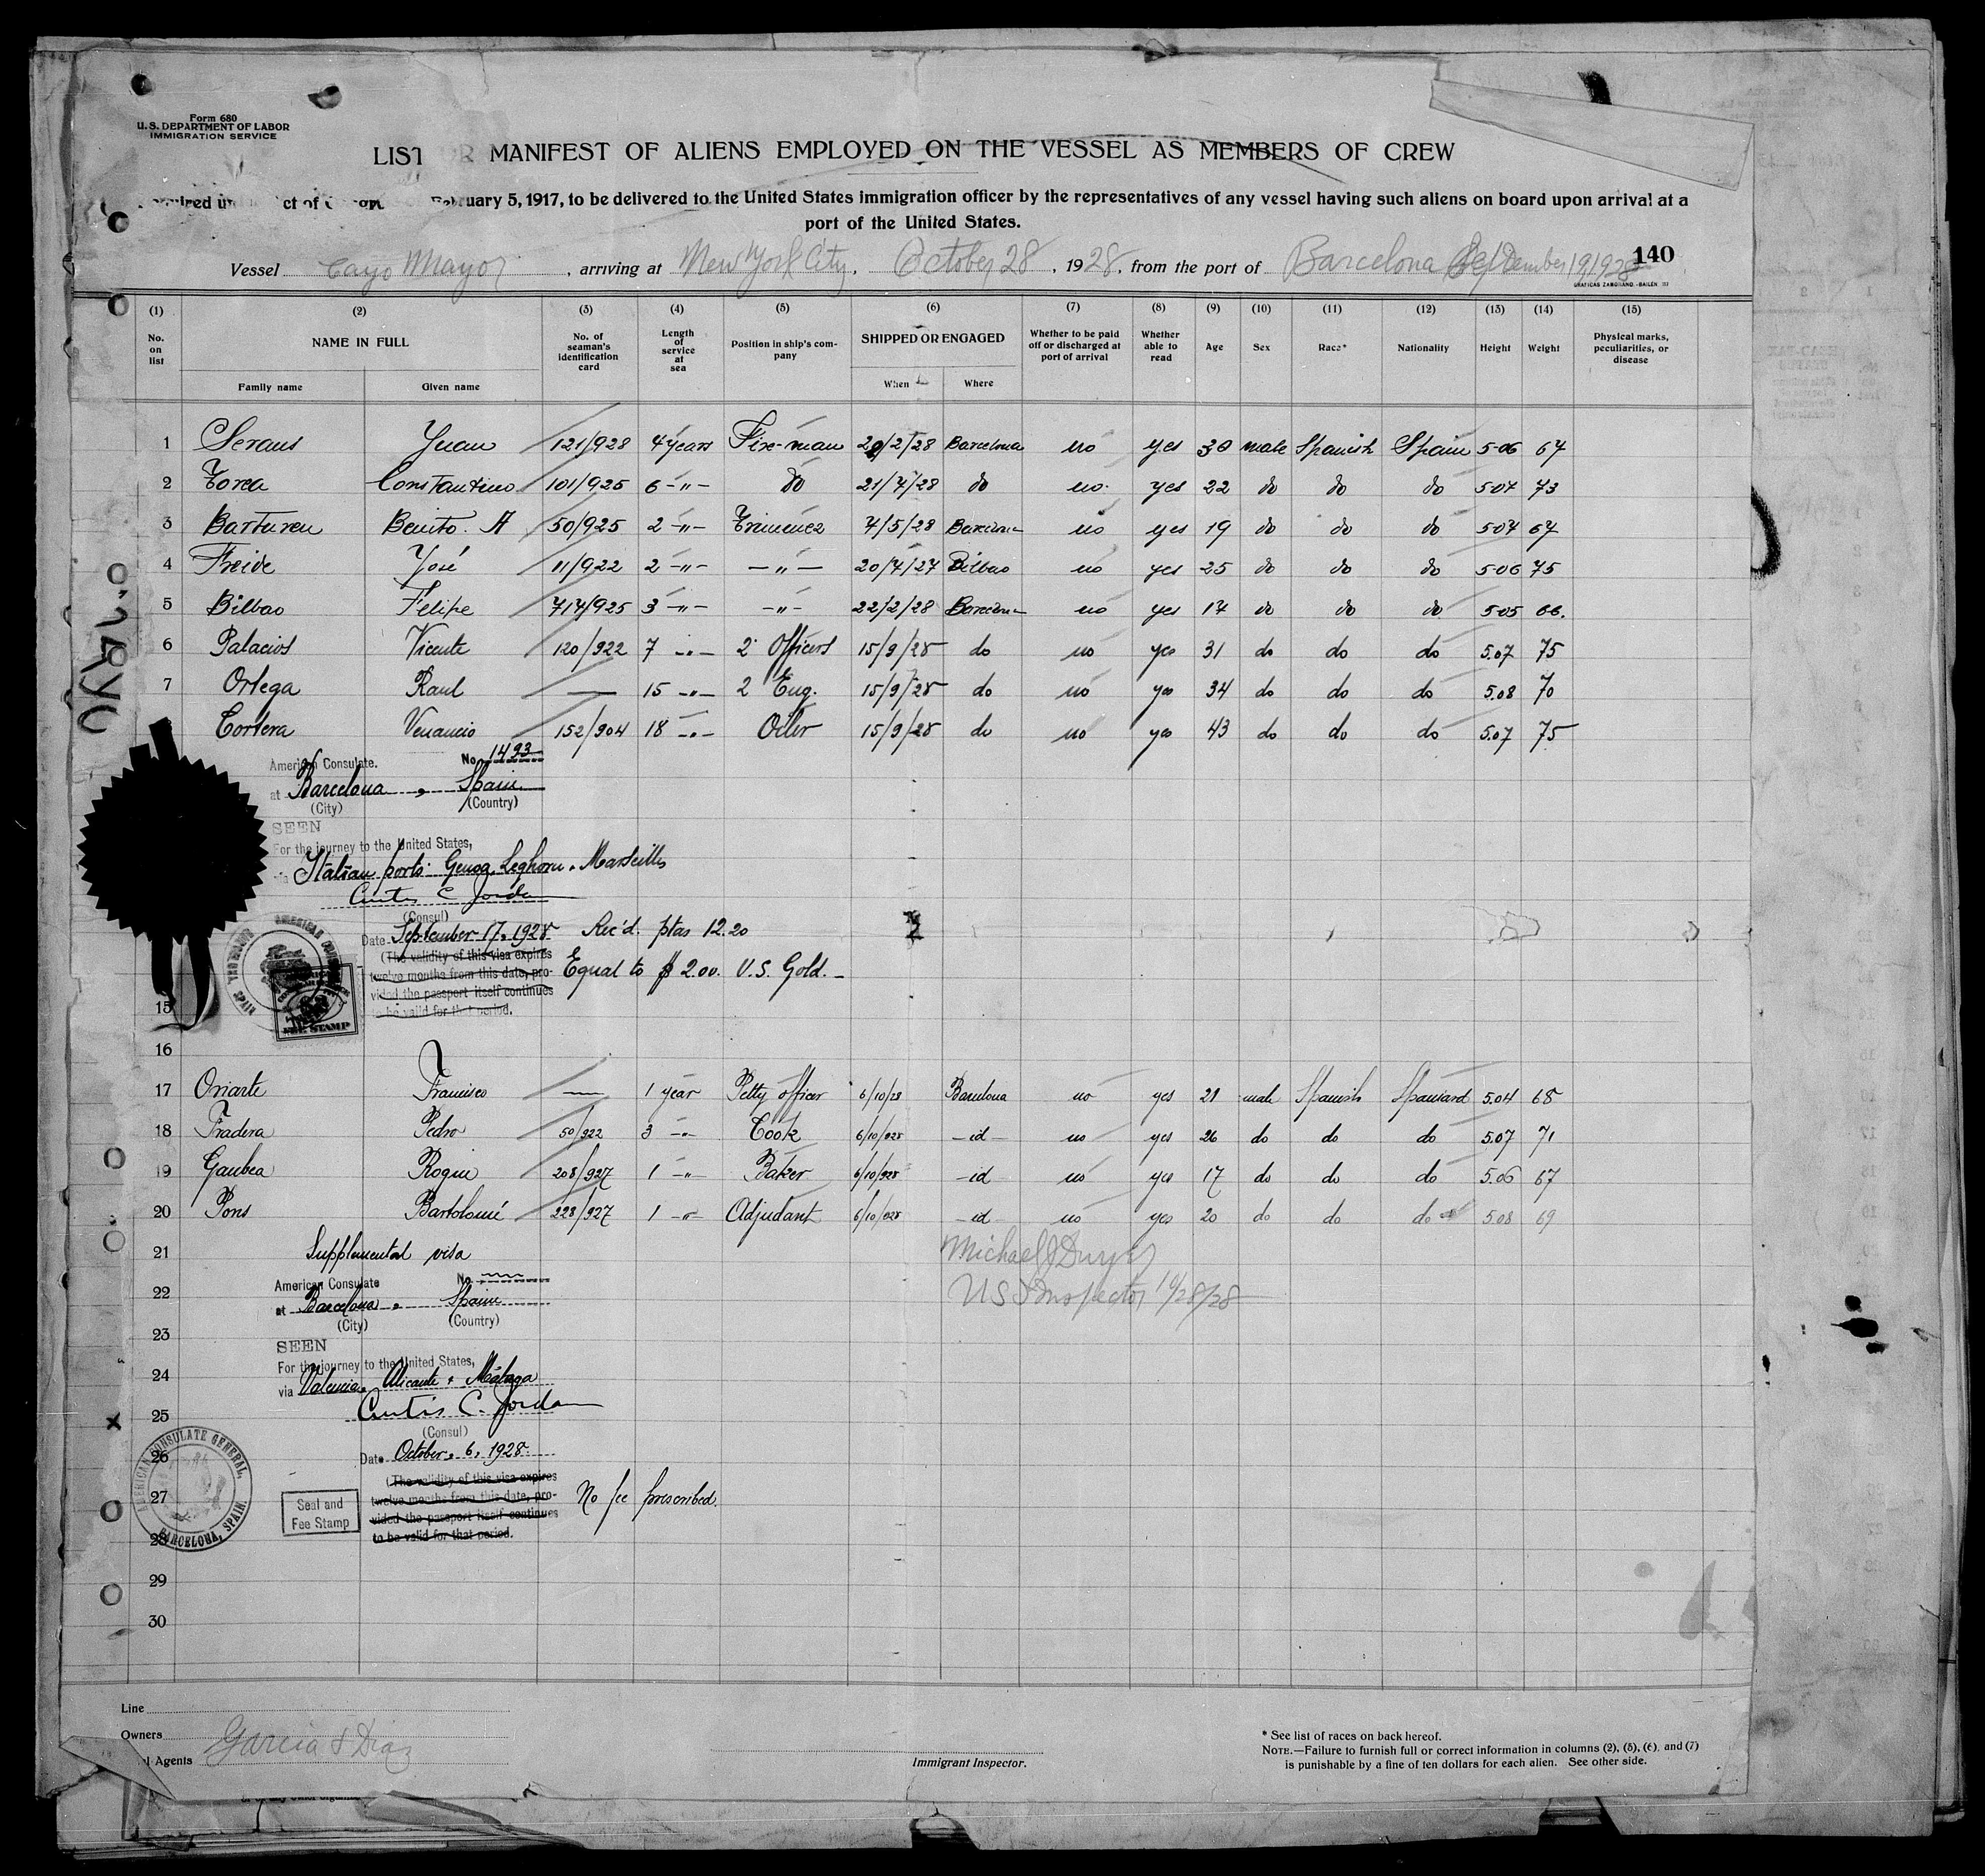 Form 680
U. S. DEPARTMENT OF LABOR
IMMIGRATION SERVICE
LIST OR MANIFEST OF ALIENS EMPLOYED ON THE VESSEL AS MEMBERS OF CREW
February 5, 1917, to be delivered to the United States immigration officer by the representatives of any vessel having such aliens on board upon arrival at a
port of the United States.
140
Vessel Cayo Mayor, arriving at New York City, October 28, 1928, from the port of Barcelona September 19 1928
GRAFICAS ZAMBRANO.-BAILÉN
(1) (2) (3) (4) (5) (6) (7) (8) (9) (10) (11) (12) (13) (14) (15)
No. on list NAME IN FULL Family name Given name No. of seaman's identification card Length of service at sea Position in ship's company SHIPPED OR ENGAGED When Where Whether to be paid off or discharged at port of arrival Whether able to read Age Sex Race* Nationality Height Weight Physical marks, peculiarities, or disease
1 Juan 121/928 4 years Fire-man 20/2/28 Barcelona no yes 30 male Spanish Spain 5-06 67
2 Torea Constantino 101/925 6 -"- do 21/7/28 do no yes 22 do do do 5-07 73
3 Barturen Benito. A 50/925 2 -"- 7/5/28 Barcelona no yes 19 do do do 5-07 67
4 Freide José 11/922 2 -"- -"- 20/7/27 Bilbao no yes 25 do do do 5-06 75
5 Bilbao Felipe 717/925 3 -"- -"- 22/2/28 Barcelona no yes 17 do do do 5-05 66.
6 Palacios Vicente 120/922 7 -"- 2º Officers 15/9/28 do no yes 31 do do do 5.07 75
7 Ortega Raul — 15 -"- 2 Eng. 15/9/28 do no yes 34 do do do 5.08 70
Cortera Venancio 152/904 18 -"- Oiler 15/9/28 do no yes 43 do do do 5.07 75
American Consulate. No. 1493
at Barcelona, Spain
(City) (Country)
SEEN
For the journey to the United States,
via Italian ports: Genoa, Leghorn, Marseilles
Curtis C Jordan
(Consul)
Date September 17, 1928 Rec'd. ptas 12.20
(The validity of this visa expires
twelve months from this date, pro- Equal to $ 2.00. U.S. Gold.
vided the passport itself continues
to be valid for that period.
FEE STAMP
15
16
17 Oriarte Francisco — 1 year Petty officer 6/10/28 Barcelona no yes 21 male Spanish Spaniard 5.04 68
18 Fradera Pedro 50/922 3 -"- Cook 6/10/928 -id- no yes 26 do do do 5.07 71
19 Gaubea Roque 208/927 1 -"- Baker 6/10/928 -id- no yes 17 do do do 5.06 67
20 Pons Bartolomé 228/927 1 -"- Adjudant 6/10/928 -id- no yes 20 do do do 5.08 69
21 Supplemental visa Michael J Dwyer
American Consulate No.
22 at Barcelona, Spain US Inspector 10/28/28
(City) (Country)
23
SEEN
For the journey to the United States,
24 via Valencia, Alicante & Málaga
25 Curtis C. Jordan
(Consul)
26 Date October, 6, 1928
(The validity of this visa expires
27 twelve months from this date, pro- No fee prescribed.
vided the passport itself continues
28 to be valid for that period.
Seal and
Fee Stamp
AMERICAN CONSULATE GENERAL, BARCELONA, SPAIN.
29
30
Line
Owners
Agents Garcia & Diaz
Immigrant Inspector.
* See list of races on back hereof.
NOTE.—Failure to furnish full or correct information in columns (2), (5), (6), and (7)
is punishable by a fine of ten dollars for each alien. See other side.